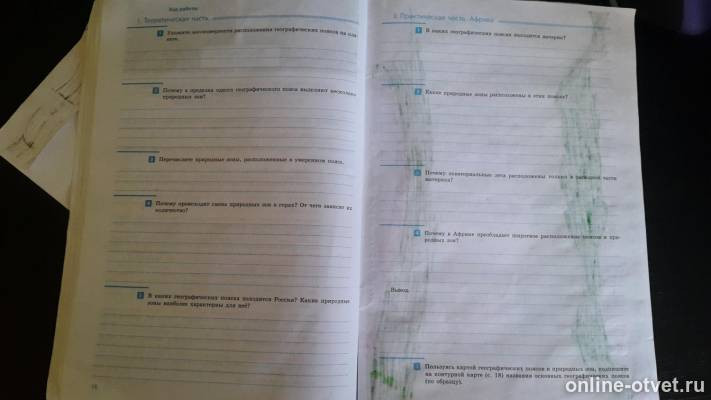 Ход работы
I. Теоретическая часть.
1 Укажите закономерности расположения географических поясов на планете.
2 Почему в пределах одного географического пояса выделяют несколько
природных зон?
3 Перечислите природные зоны, расположенные в умеренном поясе.
4 Почему происходит смена природных зон в горах? От чего зависит их
количество?
5 В каких географических поясах находится Россия? Какие природные
зоны наиболее характерны для неё?
16
II. Практическая часть. Африка
1 В каких географических поясах находится материк?
2 Какие природные зоны расположены в этих поясах?
3 Почему экваториальные леса расположены только в западной части
материка?
4 Почему в Африке преобладает широтное расположение поясов и при-
родных зон?
Вывод.
5 Пользуясь картой географических поясов и природных зон, подпишите
на контурной карте (с. 18) названия основных географических поясов
(по образцу).
online-otvet.ru